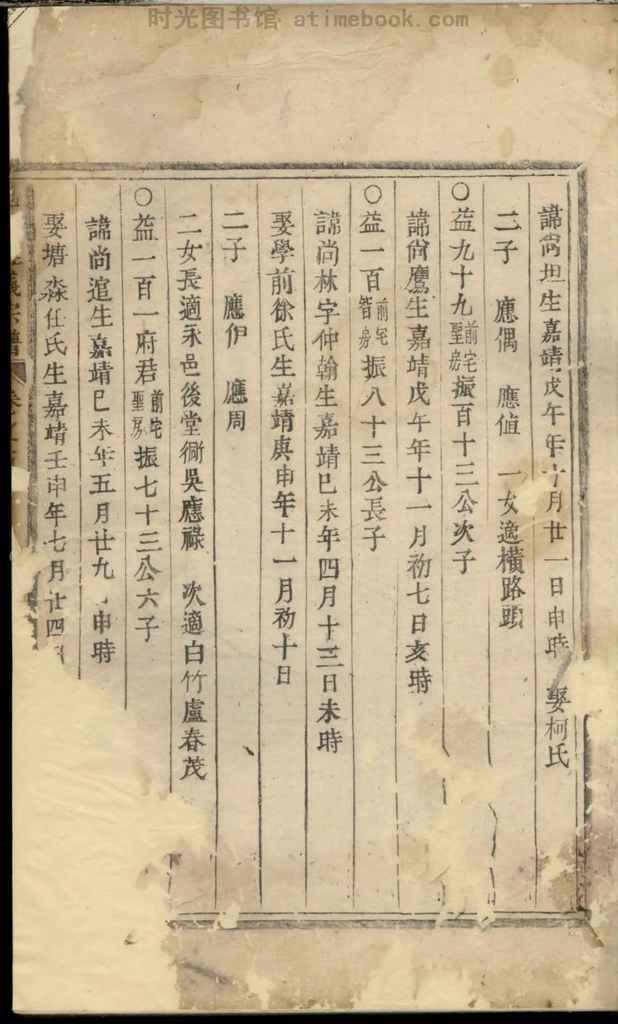 时光图书馆 atimebook.com
諱尚坦生嘉靖戊午年十月廿一日申時 娶柯氏
二子 應偶 應值 一女適橫路頭
○益九十九前宅聖房振百十三公次子
諱尙鷹生嘉靖戊午年十一月初七日亥時
○益一百前宅智房振八十三公長子
諱尚林字仲翰生嘉靖己未年四月十三日未時
娶學前徐氏生嘉靖庚申年十一月初十日
二子 應伊 應周
二女長適永邑後堂衕吳應祿 次適白竹盧春茂
○益一百一府君前宅聖房振七十三公六子
諱尚逭生嘉靖己未年五月廿九 申時
娶塘森任氏生嘉靖壬申年七月廿四
宗譜